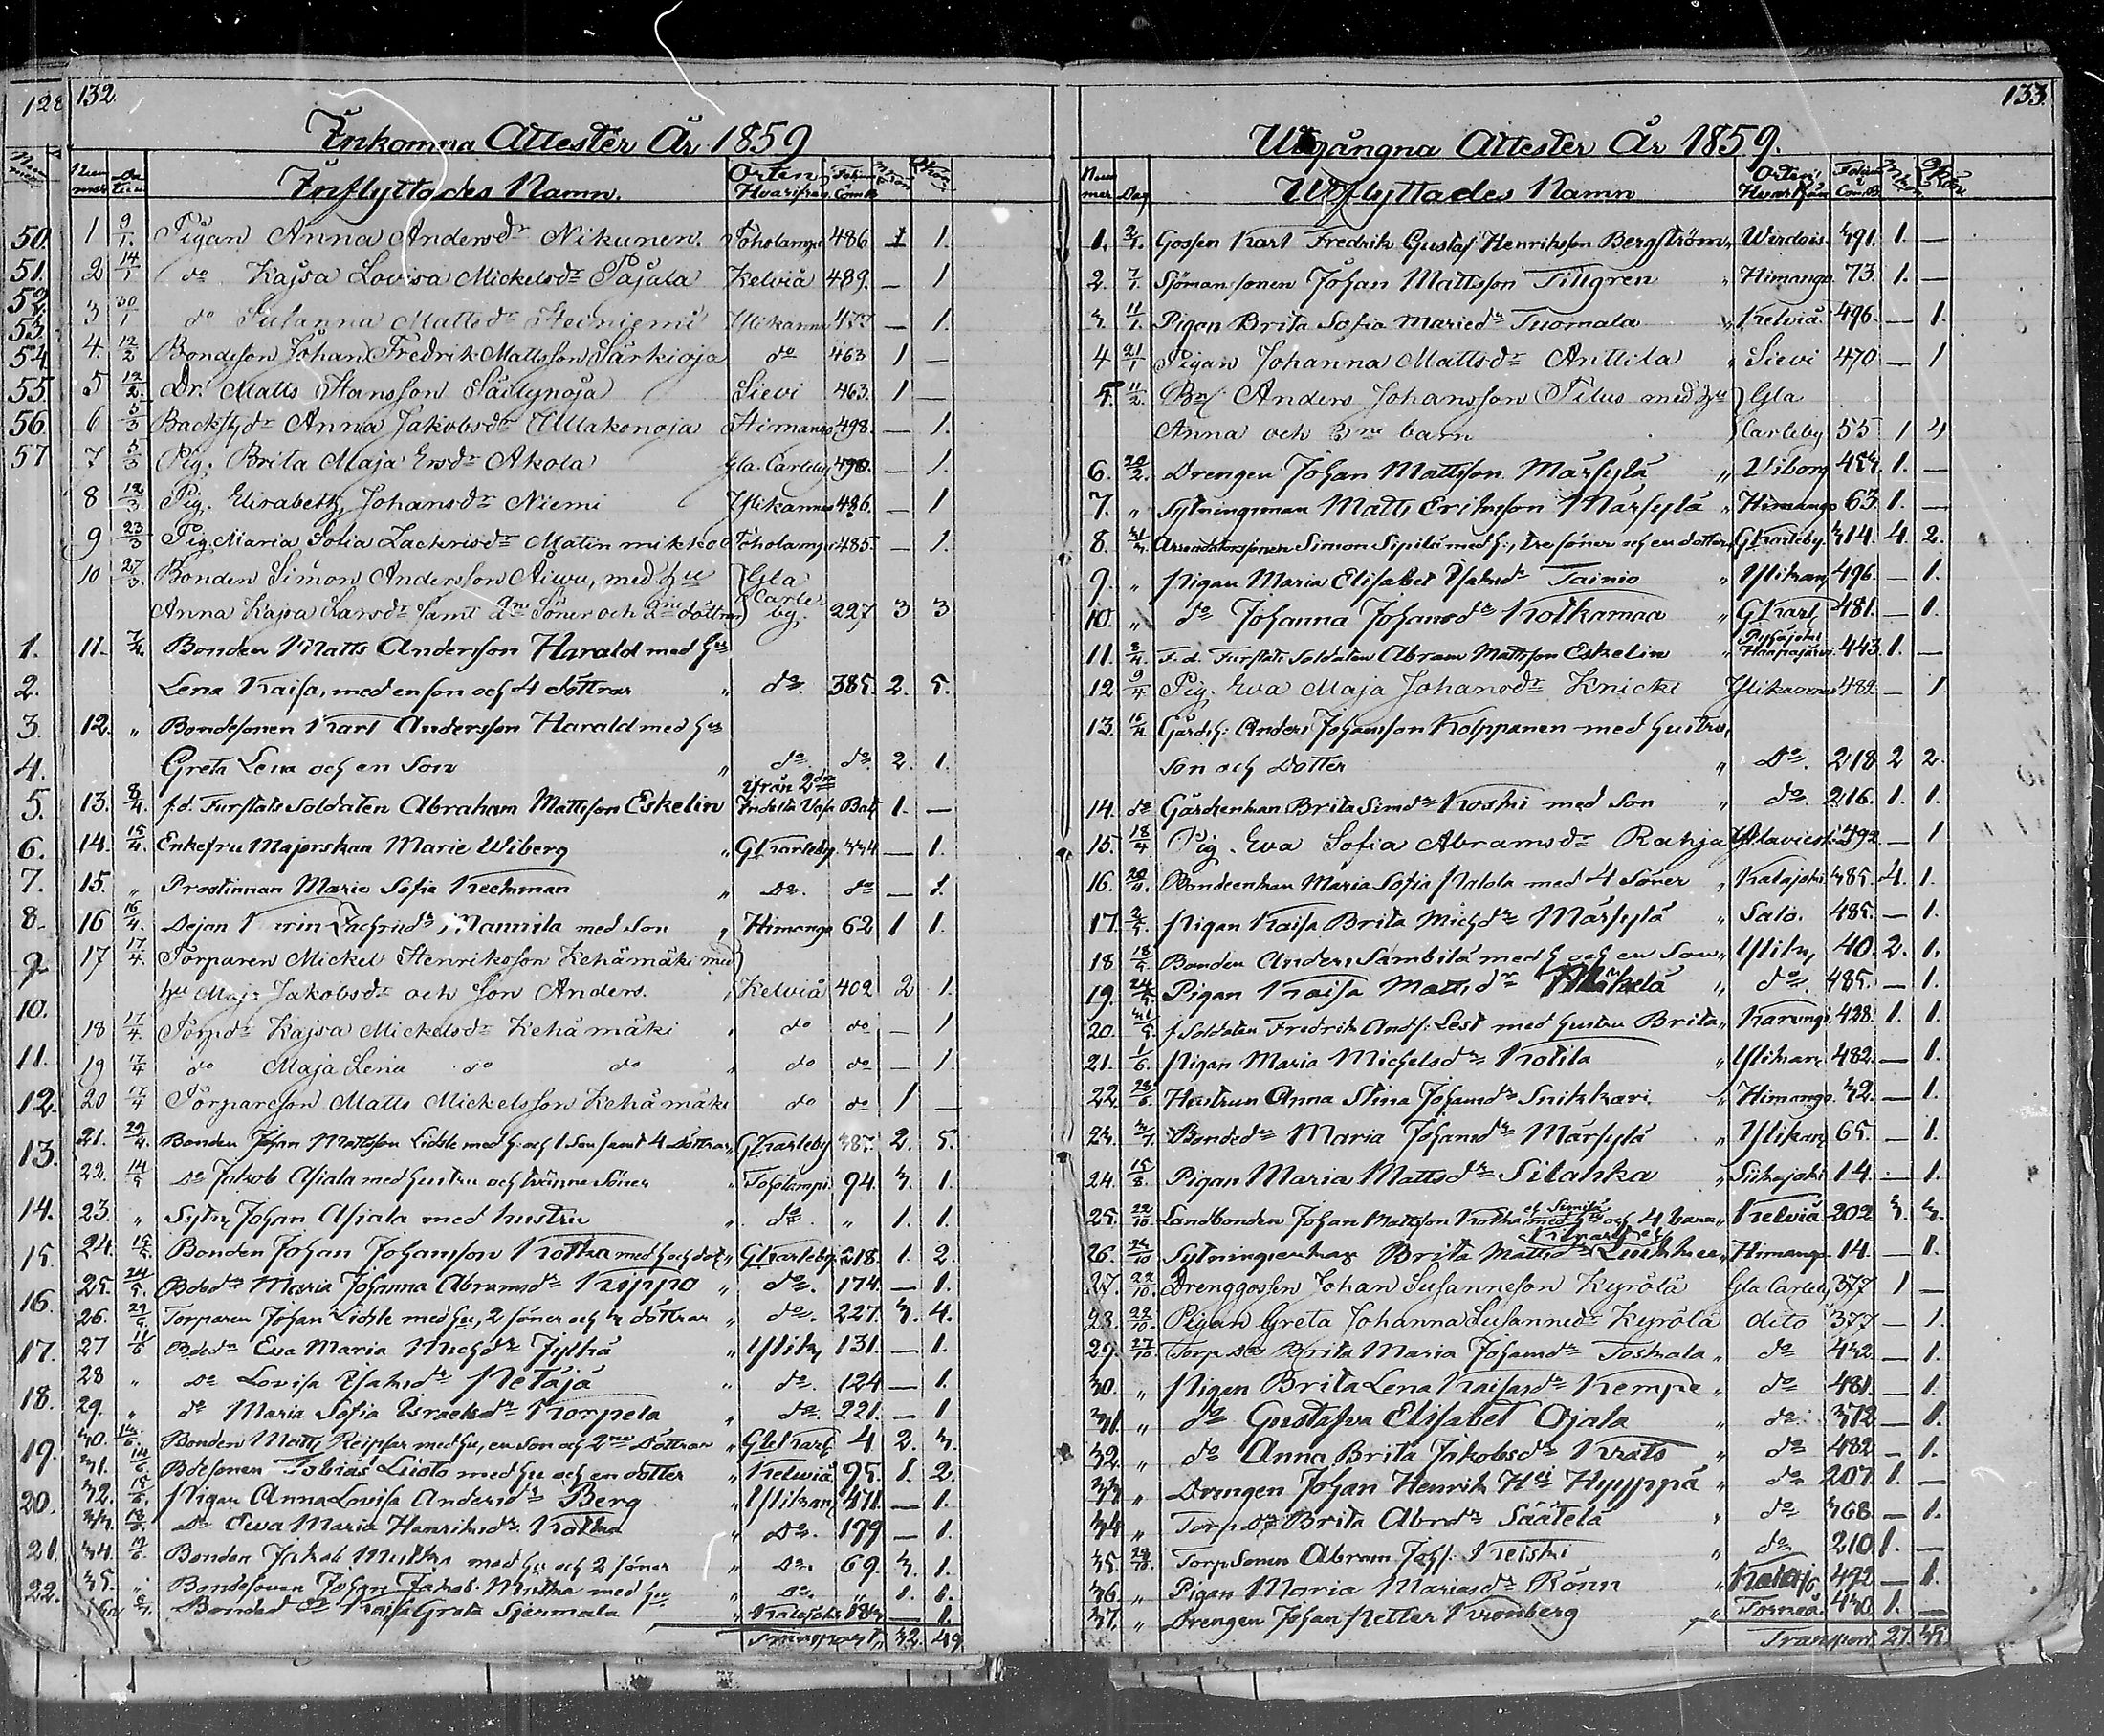 128
50.
51.
52.
53.
54
55.
56.
57
1.
2.
3.
4.
5.
6.
7.
8.
9.
10.
11.
12.
13.
14.
15.
16.
17.
18.
19.
20.
21.
22.
132.
Inkomna Attester År 1859
Nummer Datum Inflyttades Namn. Orten Hvarifrån
1 9/1. Pigan Anna Andersdr Nikunen. Toholampi 486 1 1.
2 14/1 do Kajsa Lovisa Mickelsdr Pajula Kelviå 489. — 1
3 30/1 do Susanna Mattsdr Heiniemi Ylikannus 477 — 1.
4. 12/2 Bondeson Johan Fredrik Mattsson Särkioja do 463 1 —
5 12/2. Dr. Matts Hansson Säilynoja Sievi 463. 1 —
6 5/3 Anna Jakobsdr Himango 498. — 1.
7 5/3 Pig. Brita Maja Ersdr Akola Gla. Carleby 490. — 1.
8 12/3 Pig. Elisabeth Johansdr Niemi Ylikannus 486. — 1
9 23/3 Pig. Maria Sofia Zachrisdr Matinmikko Toholampi 485. — 1.
10 27/3. Bonden Simon Andersson Aiwu, med hu Gla
Anna Kajsa Larsdr samt 2ne Söner och 2ne döttrar Carleby. 227 3 3
11. 7/4. Bonden Matts Andersson Harald med hu
Lena Kaisa, med en son och 4 döttrar „ do. 385. 2. 5.
12. „ Bondesonen Karl Andersson Harald med hu
Greta Lena och en Son „ do. do. 2. 1.
ifrån 2dra
13. 8/4. f.d. Furstats Soldaten Abraham Mattsson Eskelin Indelta Vasa Bat 1. —
14. 15/4. Enkefru Majorskan Marie Wiberg „ GKarleby. 334 — 1.
15. „ Prostinnan Marie Sofia Keckman „ do. do — 1.
16 16/4. Pejan Karin Zachrisdr, Mannila med Son „ Himango 62 1 1.
17 17/4. Torparen Mickel Henriksson Kehämäki med
hu Maja Jakobsdr och Son Anders. Kelviå 402 2 1.
18 17/4. Torpdr Kajsa Mickelsdr Kehämäki „ do do — 1
19 17/4 do Maja Lena do do „ do do — 1.
20 17/4 Torpareson Matts Mickelsson Kehämäki do do 1 —
21. 29/4. Bonden Johan Mattsson Lidtle med h. och 1 Son samt 4 Döttrar „ GKarleby 385. 2. 5.
22. 14/5 do Jakob Asiala med hustru och tvänne Söner „ Toholampi. 94. 3. 1.
23. „ Sytn. Johan Asiala med hustru „ do. „ 1. 1.
24. Bonden Johan Johansson Kotka med h. och dotr „ GKarleby. 218. 1. 2.
25. 24/5. Bdedr Maria Johanna Abramsdr Kippo „ do. 174. — 1.
26. 29/5 Torparen Johan Lidtle med hu, 2 söner och 3 döttrar „ do. 227. 3. 4.
27 11/6 Bdedr Eva Maria Michsdr Jylhä „ Ylik. 131. — 1.
28 „ do Lovisa Isaksdr Petäjä „ do. 124 — 1.
29. „ do Maria Sofia Israelsdr Korpela „ do. 221. — 1
30. Bonden Matts Reipsar med hu, en Son och 2ne Döttrar „ GKarl. 4. 2. 3.
31. Bdesonen Tobias Luoto med hu och en dotter „ Kelwiå 95. 1. 2.
32. Pigan Anna Lovisa Andersdr Berg „ Ylikan. 471. — 1.
33. do Ewa Maria Henriksdr Kotka „ do. 199 — 1.
34. Bonden Jakob Mutka med hu och 2 söner „ do. 69. 3. 1.
35. „ Bondesonen Johan Jakob Mutka med hu „ do. „ 1. 1.
Bondedr Kajsa Greta Sjermala „ Kalajoki — 1.
Transport 32. 49.
133.
Utgångna Attester År 1859.
Nummer Dag Utflyttades Namn Orten
1. 2/1. Gossen Karl Fredrik Gustaf Henriksson Bergström „ Wirdois. 391. 1. —
2. 7/1. Sjömansonen Johan Mattsson Tillgren „ Himango. 73. 1. —
3. 11/1. Pigan Brita Sofia Mariedr Tuomala „ Kelviå. 496. — 1.
4 21/1 Pigan Johanna Mattsdr Anttila „ Sievi 470 — 1
5. 11/2. Bn Anders Johansson Pilus med hu Gla
Anna och 3ne barn Carleby 55 1 4
6. 20/2. Drengen Johan Mattsson Märsylä „ Viborg 454. 1. —
7. „ Sytningsman Matts Eriksson Märsylä „ Himango 63. 1. —
8. Arrendatorssonen Simon Sipilä med h., tre söner och en dotter, GKarleby. 314. 4. 2.
9. „ Pigan Maria Elisabet Isaksdr Tainio „ Ylikan. 496. — 1.
10. „ do Johanna Johansdr Kotkamaa „ GKarl 481. — 1.
11. 8/4. F.d. Furstats Soldaten Abram Mattsson Eskelin „ Pihajoki Haapajärvi. 443. 1. —
12 9/4 Pig. Eva Maja Johansdr Knickt Ylikannus 482 — 1
13. 15/4. Gårdsh. Anders Johansson Kolppanen med hustru,
son och dotter „ do. 218 2 2.
14. do Gårdenkan Brita Simsdr Koski med Son „ do. 216. 1. 1.
15. 18/4 Pig. Eva Sofia Abramsdr Rahja Ylivieska 492. — 1
16. 20/4. Bondeenkan Maria Sofia Palola med 4 Söner „ Kalajoki. 385. 4. 1.
17. 2/5. Pigan Kaisa Brita Michsdr Märsylä „ Salo. 485. — 1.
18. 18/5. Bonden Anders Sämbilä med h. och en Son „ Ylik. 40. 2. 1.
19. 24/5. Pigan Kaisa Mattsdr Mäkelä „ do. 485. — 1.
20. 31/5. f. Soldaten Fredrik Ands. Lest med hustru Brita „ Karungi. 428. 1. 1.
21. 1/6. Pigan Maria Michelsdr Kotila „ Ylikan. 482. — 1.
22. 28/6. Hustrun Anna Stina Johansdr Snikkari „ Himango. 32. — 1.
23. 3/7. Bondedr Maria Johansdr Märsylä „ Ylikan. 65. — 1.
24. 15/8. Pigan Maria Mattsdr Silahka „ Siikajoki 14. — 1.
25. 22/10. Landbonden Johan Mattsson Kotka med hu och 4 barn „ Kelviå 202 3. 3.
26. 24/10 Sytningsenkan Brita Mattsdr „ Himango. 14. — 1.
27. 22/10. Drenggossen Johan Susanneson Kyrölä Gla Carleby 377 1 —
28. 22/10. Pigan Greta Johanna Susannedr Kyrölä dito 377 — 1.
29. 27/10. Torpdr Brita Maria Johansdr Toskala „ do 442 — 1.
30. „ Pigan Brita Lena Kaisasdr Kempe „ do 481. — 1.
31. „ do Gustafva Elisabet Ojala „ do. 372 — 1.
32. „ do Anna Brita Jakobsdr Krats „ do 482 — 1.
33. „ Drengen Johan Henrik Hri Hyyppä „ do 207. 1. —
34 „ Torpdr Brita Abrsdr Säätelä „ do 368 — 1.
35. Torpsonen Abram Johs. Keiski „ do 210 1. —
36 „ Pigan Maria Mariasdr Rönn „ Kalajo. 492 — 1.
37. „ Drengen Johan Petter Kronberg „ Torneå 430 1. —
Transport. 27. 37.